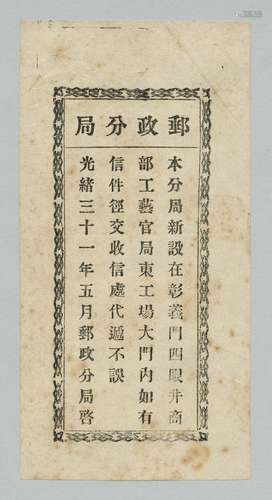 郵政分局
本分局新設在彰義門四眼井商
部工藝官局東工場大門內如有
信件徑交收信處代遞不誤
光緒三十一年五月郵政分局啓